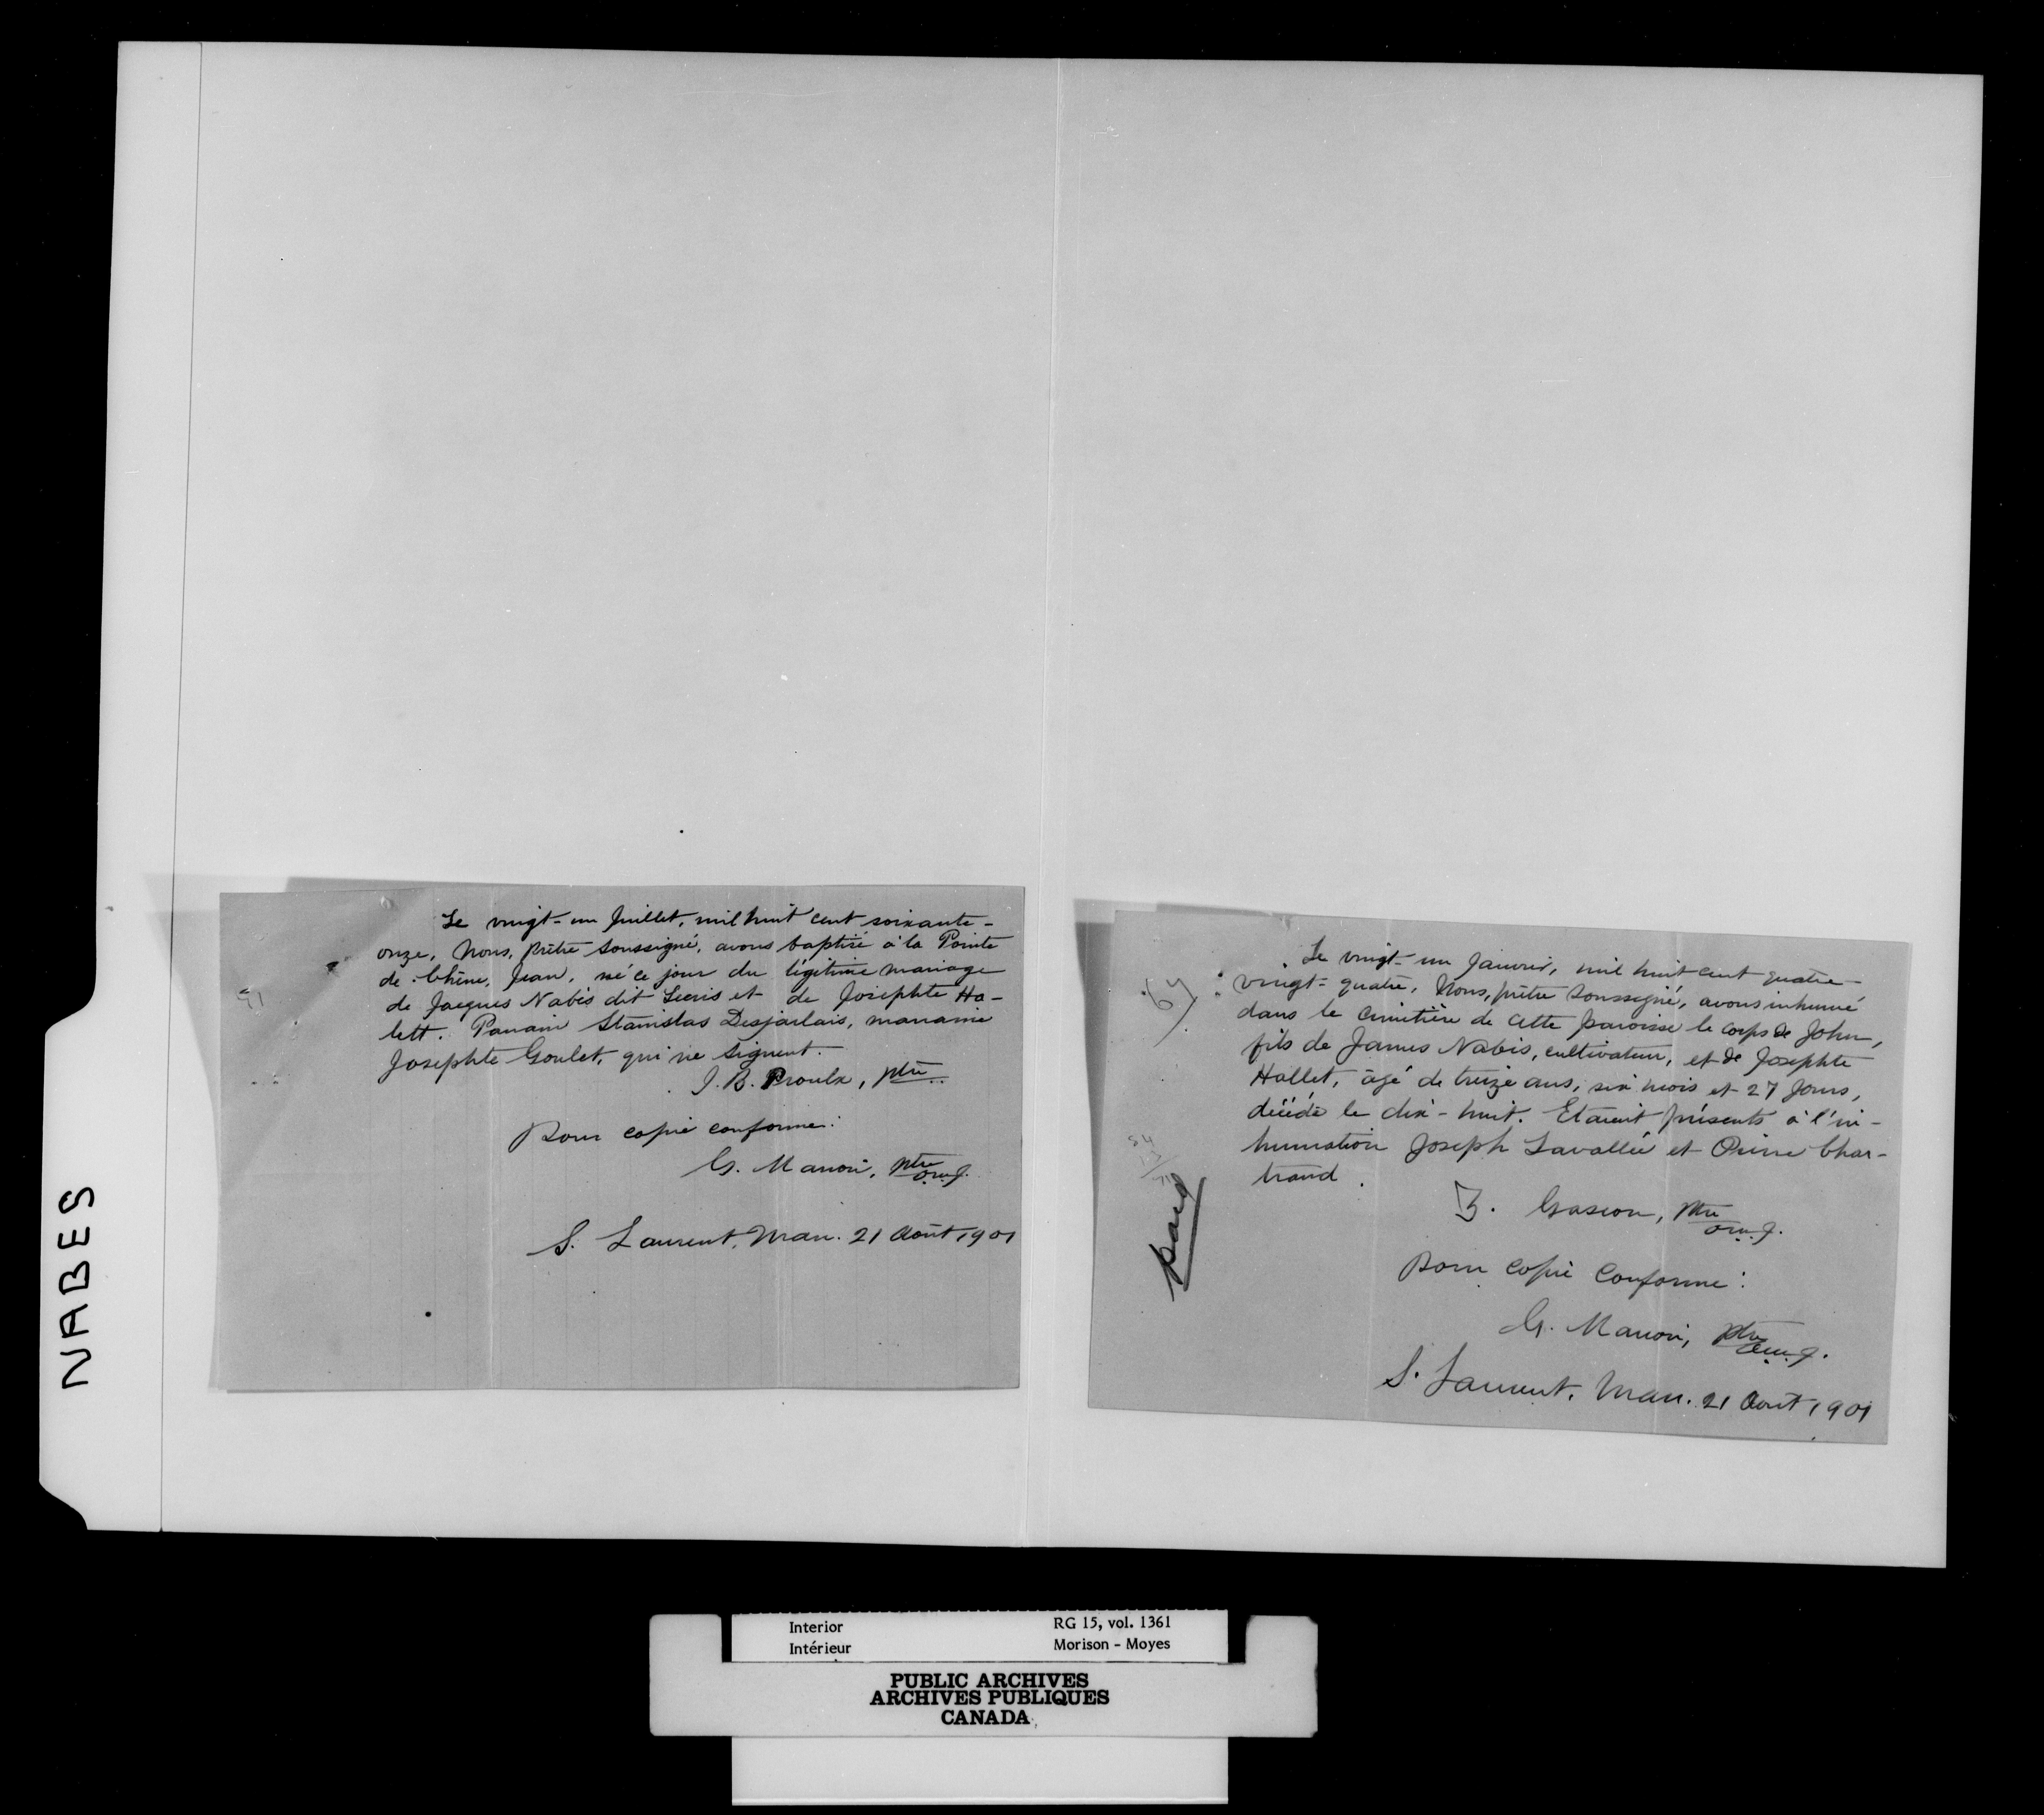 NABES
91
Le vingt-un Juillet, mil huit cent soixante-
onze, Nous, Prêtre soussigné, avons baptisé à la Pointe
de Chêne, Jean, né ce jour du légitime mariage
de Jacques Nabès dit et de Josephte Ha-
lett. Parrain Stanislas Desjarlais, marraine
Josephte Goulet, qui ne signent.
J. B. Proulx, ptre
Pour copie conforme:
G. , ptre o.m.j.
S. Laurent, Man. 21 Août 1901
Le vingt-un Janvier, mil huit cent quatre-
vingt-quatre, Nous, prêtre soussigné, avons inhumé
dans le cimitière de cette paroisse le corps de John,
fils de James Nabès, cultivateur, et de Josephte
Hallet, âgé de treize ans, six mois et 27 Jours,
décédé le dix-huit. Etaient présents à l'in-
humation Joseph Lavallée et Pierre Char-
trand.
Gascon, ptre
o.m.j.
Pour copie conforme:
G. , ptre
o.m.j.
S. Laurent, Man. 21 Août 1901
Interior RG 15, vol. 1361
Intérieur Morison - Moyes
PUBLIC ARCHIVES
ARCHIVES PUBLIQUES
CANADA